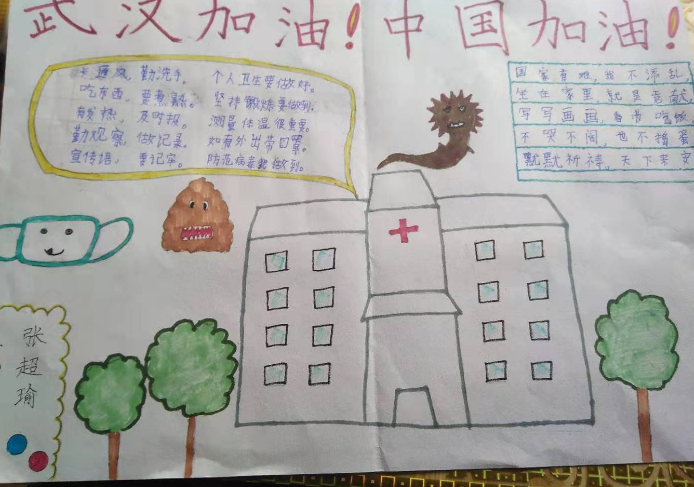 武汉加油!中国加油!
勤洗手。 个人卫生要做好。
吃东西, 要煮熟。 坚持锻炼要做到。
及时报。 测量体温很重要。
勤观察, 做记录。 如有外出带口罩。
宣传语, 要记牢。 防范病毒能做到。
国家有难,我不添乱,
坐在家里就是贡献
写写画画,看书吃饭
不哭不闹,也不捣蛋
默默祈祷,天下平安
张超瑜